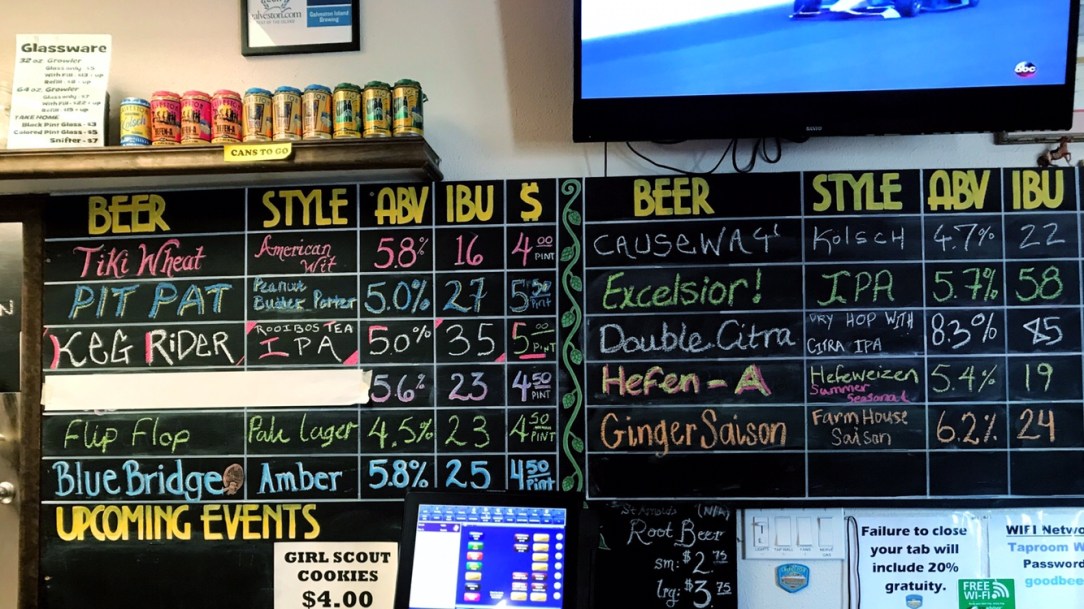 Galveston.com
Galveston Island
Brewing
abc
Glassware
32 oz Growler
Glass only - $5
64 oz Growler
Glass only - $7
TAKE HOME
Black Pint Glass - $3
Colored Pint Glass - $5
Snifter - $7
CANS TO GO
BEER STYLE ABV IBU $
Tiki Wheat American Wit 5.8% 16 4.00 PINT
PIT PAT Peanut Butter Porter 5.0% 27 5.50 Pint
KEG RiDER ROOIBOS TEA IPA 5.0% 35 5.00 PINT
5.6% 23 4.50 PINT
Flip Flop Pale Lager 4.5% 23 4.50 PINT
Blue Bridge Amber 5.8% 25 4.50 Pint
UPCOMING EVENTS
GIRL SCOUT
COOKIES
$4.00
BEER STYLE ABV IBU
CAUSEWAY Kolsch 4.7% 22
Excelsior! IPA 5.7% 58
Double Citra DRY HOP WITH CITRA IPA 8.3% 85
Hefen-A Hefeweizen Summer Seasonal 5.4% 19
Ginger Saison Farm House Saison 6.2% 24
St Arnolds
Root Beer
sm: $2.75
lrg: $3.75
Failure to close
your tab will
include 20%
gratuity.
FREE
Wi-Fi
WIFI Netwo
Taproom W
Password
goodbee